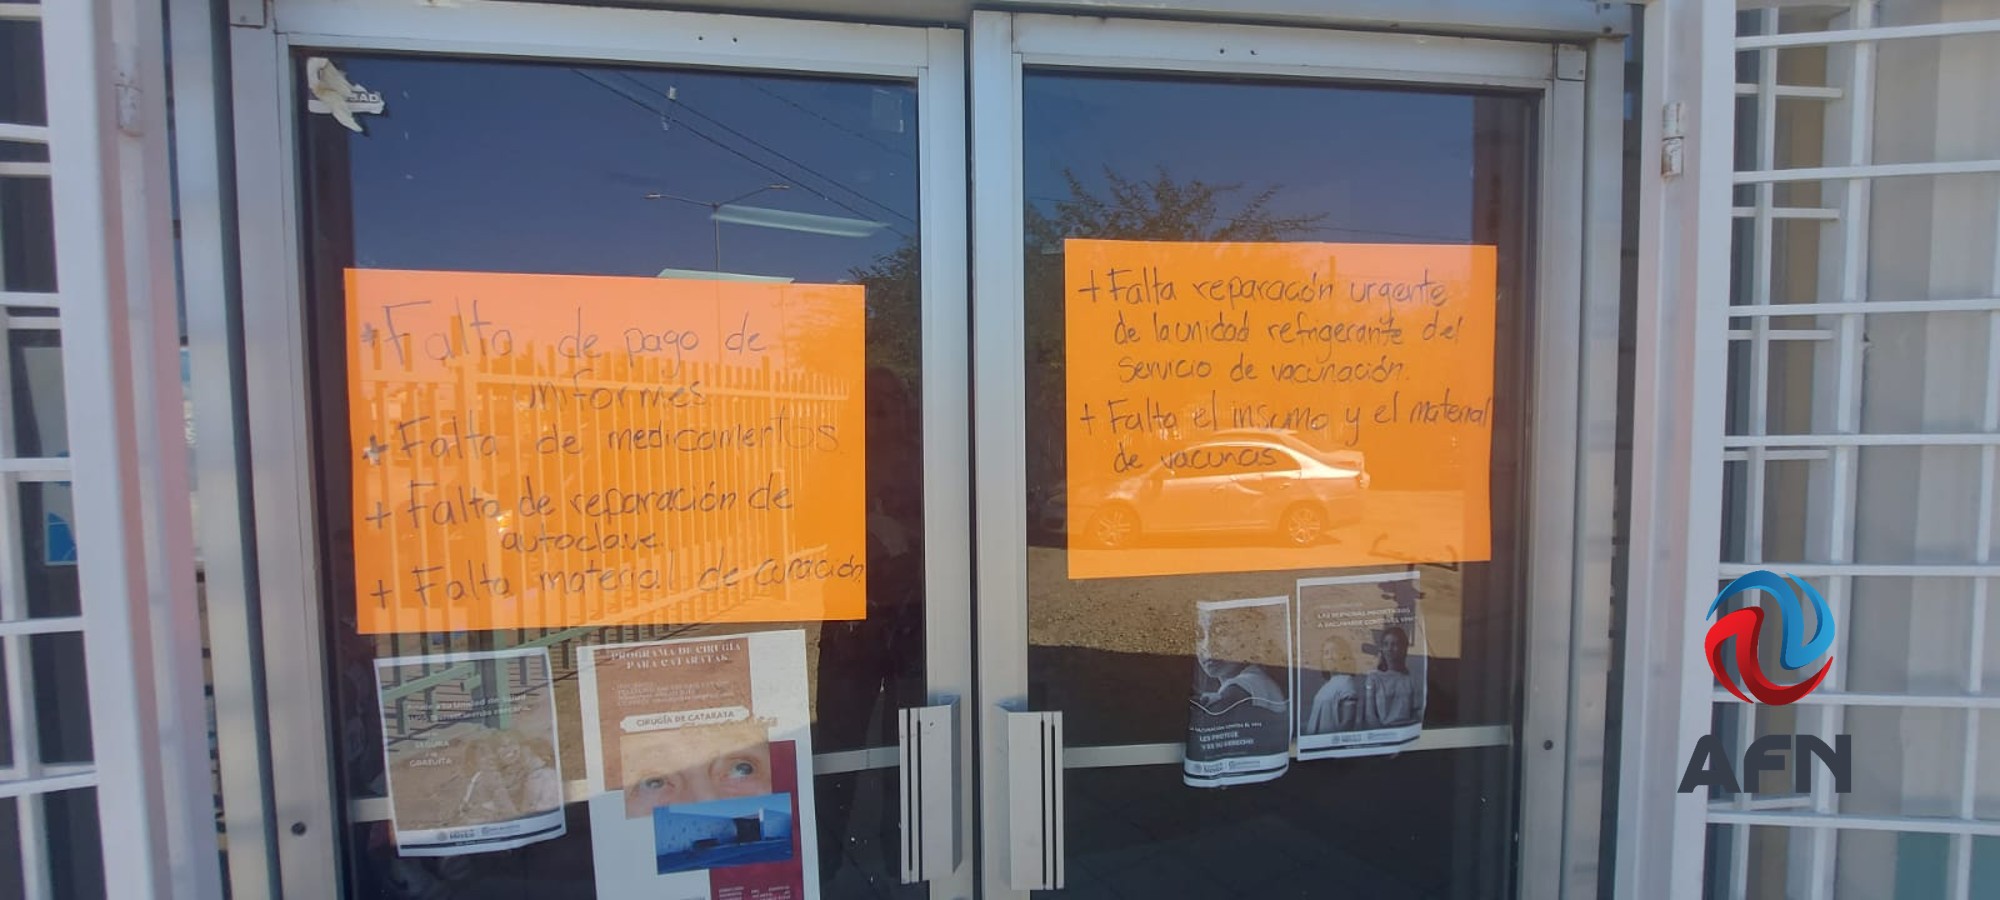 + Falta de pago de
informes
+ Falta de medicamentos
+ Falta de reparación de
autoclave.
+ Falta material de curación
+ Falta reparación urgente
de la unidad refrigerante del
servicio de vacunación.
+ Falta el insumo y el material
de vacunas
PROGRAMA DE CIRUGÍA
PARA CATARATAS
CIRUGÍA DE CATARATA
SEGURA
GRATUITA
LES PROTEGE
Y ES SU DERECHO
AFN